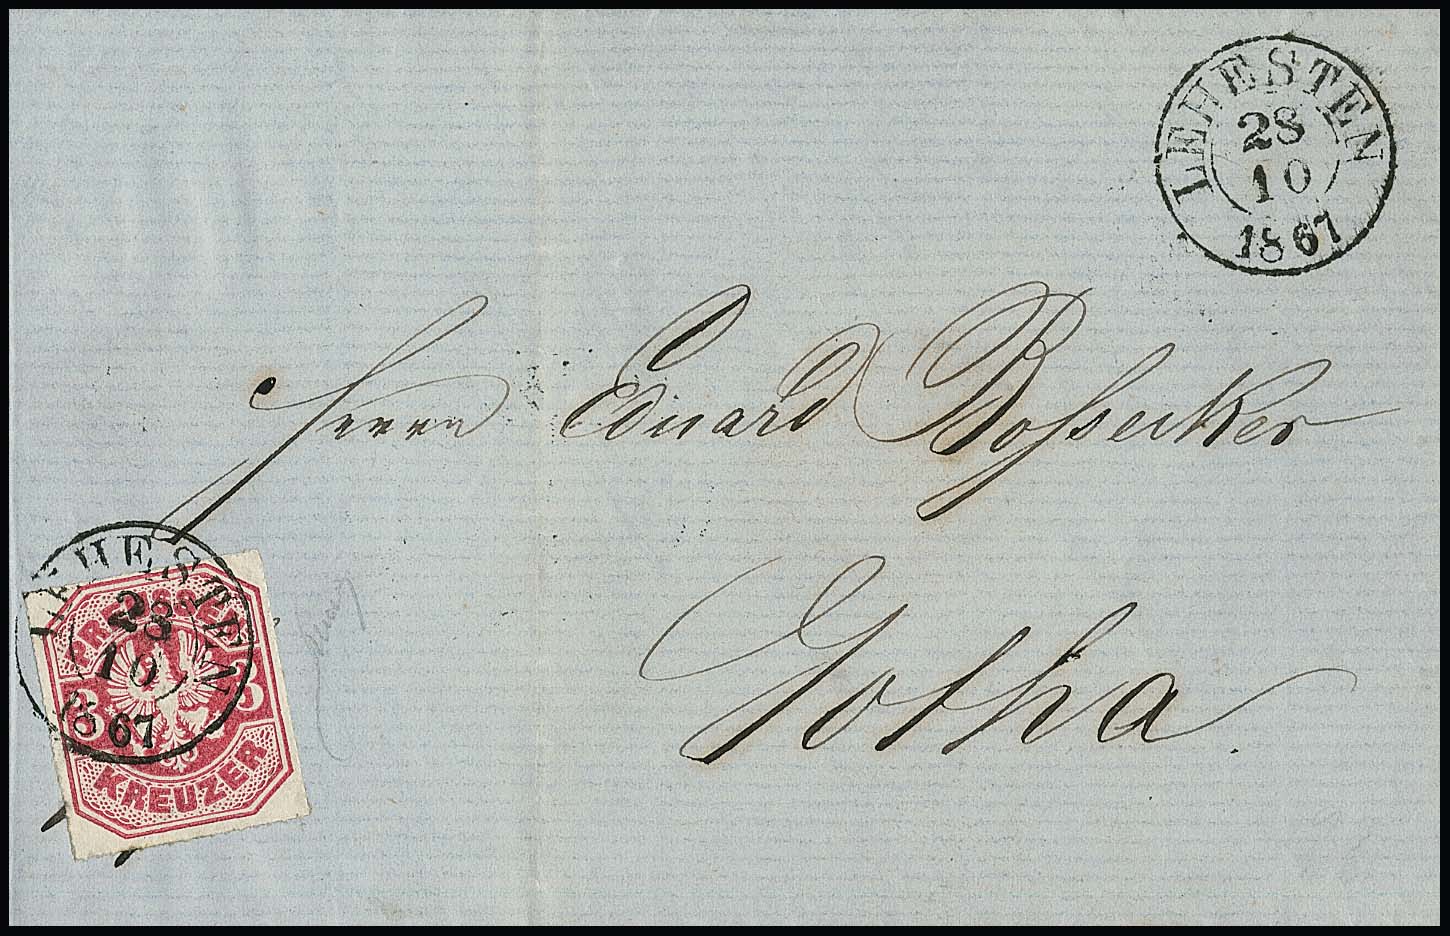 LEHESTEN
28
10
1867
Herrn Eduard Bossecker
Gotha.
LEHESTEN
28
10
1867
PREUSSEN
3 3
KREUZER